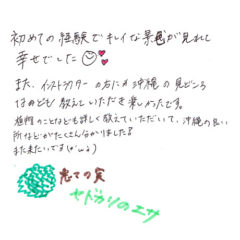 初めての経験でキレイな景色が見れて
幸せでした
また、インストラクターの方に沖縄の見どころ
なども教えていただき楽しかったです。
植物のことなども詳しく教えていただいて、沖縄の良い
所などがたくさん分かりました!
また来たいです(*'ω'*)
恋での実
ヤドカリのエサ